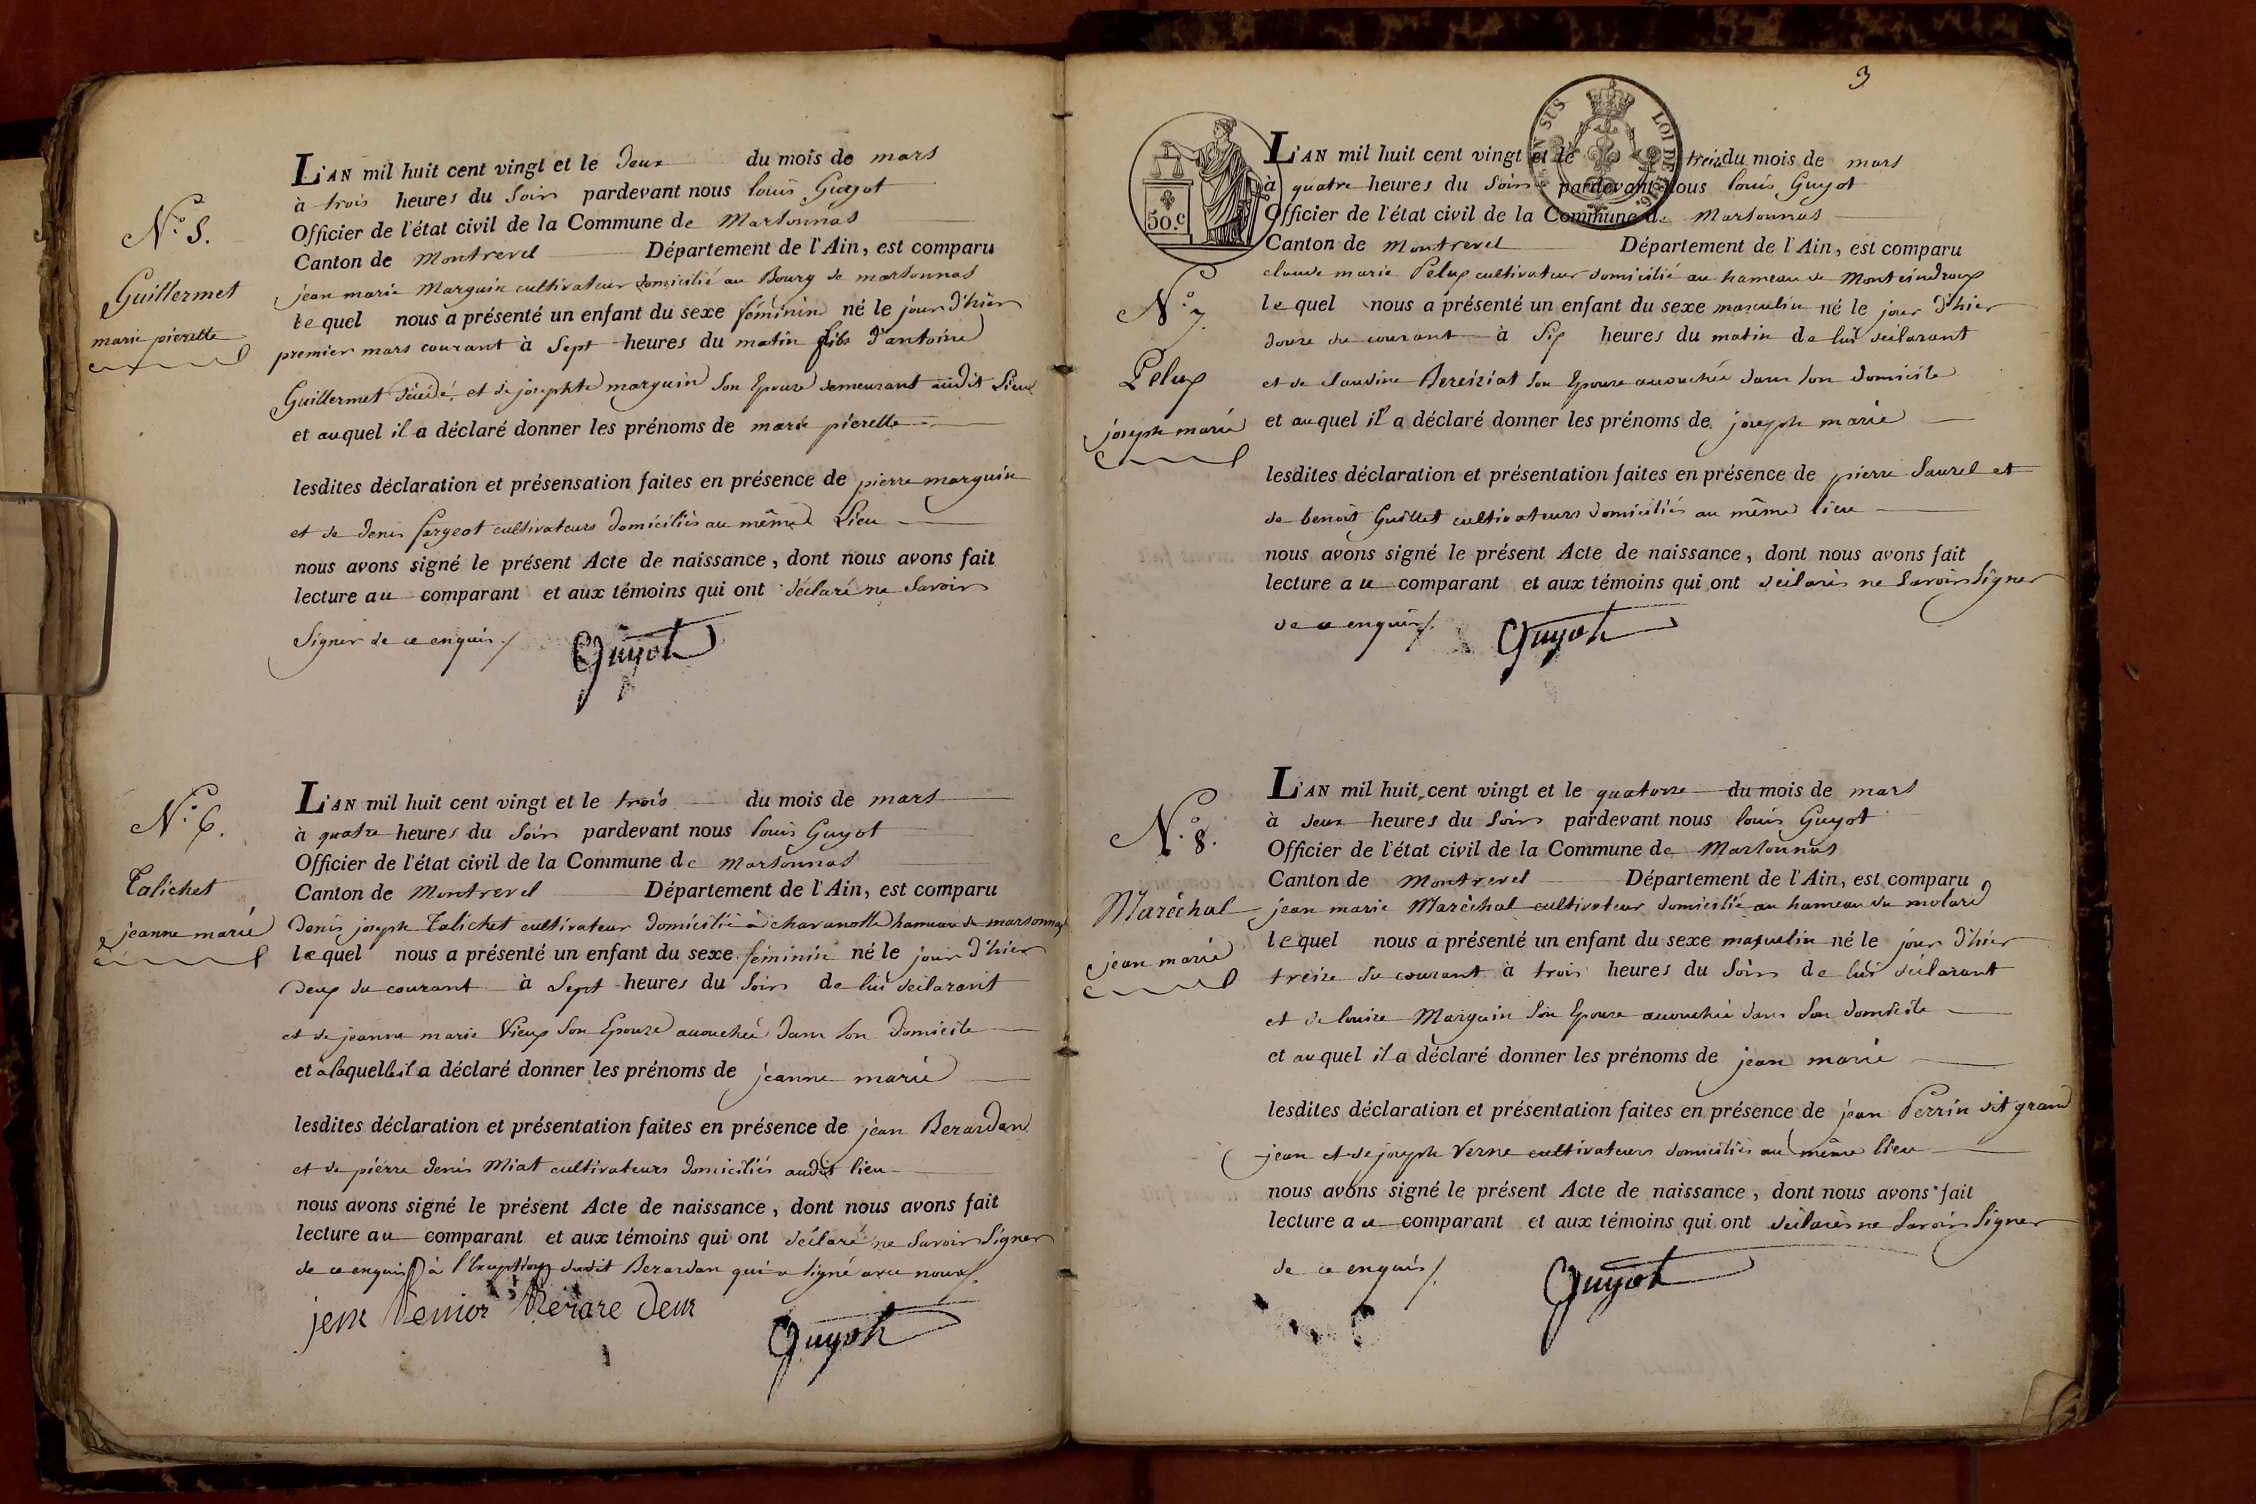 N.° 5.
Guillermet
marie pierette
L'AN mil huit cent vingt et le deux du mois de mars
à trois heures du Soir pardevant nous louis Guyot
Officier de l'état civil de la Commune de Marsonnas
Canton de Montrevel Département de l'Ain, est comparu
jean marie Marguin cultivateur domicilié au Bourg de marsonnas
le quel nous a présenté un enfant du sexe féminin né le jour d'hier
premier mars courant à Sept heures du matin fils d'antoine
Guillermet décédé, et de josephte marguin Son Epouse demeurant audit Lieu
et auquel il a déclaré donner les prénoms de marie pierette
lesdites déclaration et présensation faites en présence de pierre marguin
et de denis fargeot cultivateurs domiciliés au même Lieu
nous avons signé le présent Acte de naissance, dont nous avons fait
lecture au comparant et aux témoins qui ont déclaré ne Savoir
Signer de ce enquis ./
Guyot
N.° 6.
Talichet
jeanne marie
L'AN mil huit cent vingt et le trois du mois de mars
à quatre heures du Soir pardevant nous louis Guyot
Officier de l'état civil de la Commune de Marsonnas
Canton de Montrevel Département de l'Ain, est comparu
Denis joseph Talichet cultivateur domicilié à charanotte hameau de marsonnas
le quel nous a présenté un enfant du sexe féminin né le jour d'hier
Deux du courant à Sept heures du Soir de lui déclarant
et de jeanne marie Vieux Son Epouse accouchée dans Son domicile
et à laquelle il a déclaré donner les prénoms de jeanne marie
lesdites déclaration et présentation faites en présence de jean Berardan
et de pierre denis Miat cultivateurs domiciliés audit lieu
nous avons signé le présent Acte de naissance, dont nous avons fait
lecture au comparant et aux témoins qui ont déclaré ne Savoir Signer
de ce enquis à l'Exception dudit Berardan qui a Signé avec nous ./
Guyot
3
50.c
LOI DE 1816.
EN SUS
N.° 7.
Pelux
joseph marie
L'AN mil huit cent vingt et le treize du mois de mars
à quatre heures du Soir pardevant nous louis Guyot
Officier de l'état civil de la Commune de Marsonnas
Canton de Montrevel Département de l'Ain, est comparu
claude marie Pelux cultivateur domicilié au hameau de Montcindroux
le quel nous a présenté un enfant du sexe masculin né le jour d'hier
douze du courant à Six heures du matin de lui déclarant
et de claudine Bereiziat Son Epouse accouchée dans Son domicile
et au quel il a déclaré donner les prénoms de joseph marie
lesdites déclaration et présentation faites en présence de pierre Saurel et
de benoit Guillet cultivateurs domiciliés au même lieu
nous avons signé le présent Acte de naissance, dont nous avons fait
lecture au comparant et aux témoins qui ont déclarés ne Savoir Signer
de ce enquis ./
Guyot
N.° 8.
Maréchal
jean marie
L'AN mil huit cent vingt et le quatorze du mois de mars
à deux heures du Soir pardevant nous louis Guyot
Officier de l'état civil de la Commune de Marsonnas
Canton de Montrevel Département de l'Ain, est comparu
jean marie Maréchal cultivateur domicilié au hameau du molard
le quel nous a présenté un enfant du sexe masculin né le jour d'hier
treize du courant à trois heures du Soir de lui déclarant
et de louise Marguin Son Epouse accouchée dans Son domicile
et au quel il a déclaré donner les prénoms de jean marie
lesdites déclaration et présentation faites en présence de jean Perrin dit grand
jean et de joseph Verne cultivateurs domiciliés au même lieu
nous avons signé le présent Acte de naissance, dont nous avons fait
lecture au comparant et aux témoins qui ont déclarés ne Savoir Signer
de ce enquis ./
Guyot